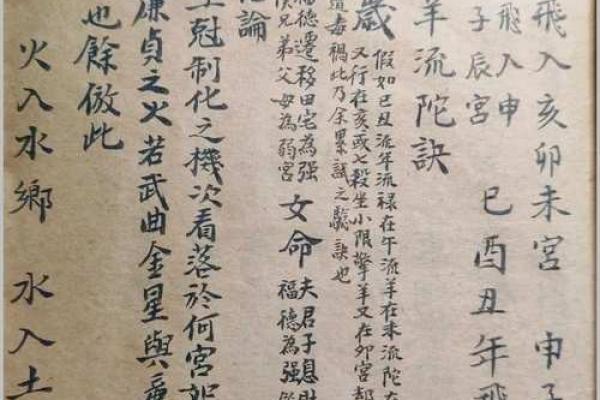 飛入亥卯未宮 申子
飛入申
子辰宮
巳酉丑年飛
羊流陀訣
歲
假如己丑流年流祿在午流羊在未流陀在
又行在亥或七殺坐小限擎羊又在卯宮
遭毒禍此乃余累試之驗訣也
福德遷移田宅為強
兄弟父母為弱宮
女命
夫君子息財
福德為強
論
尅制化之機次看落於何宮如
廉貞之火若武曲金星與
也餘倣此
火入水鄉 水入土